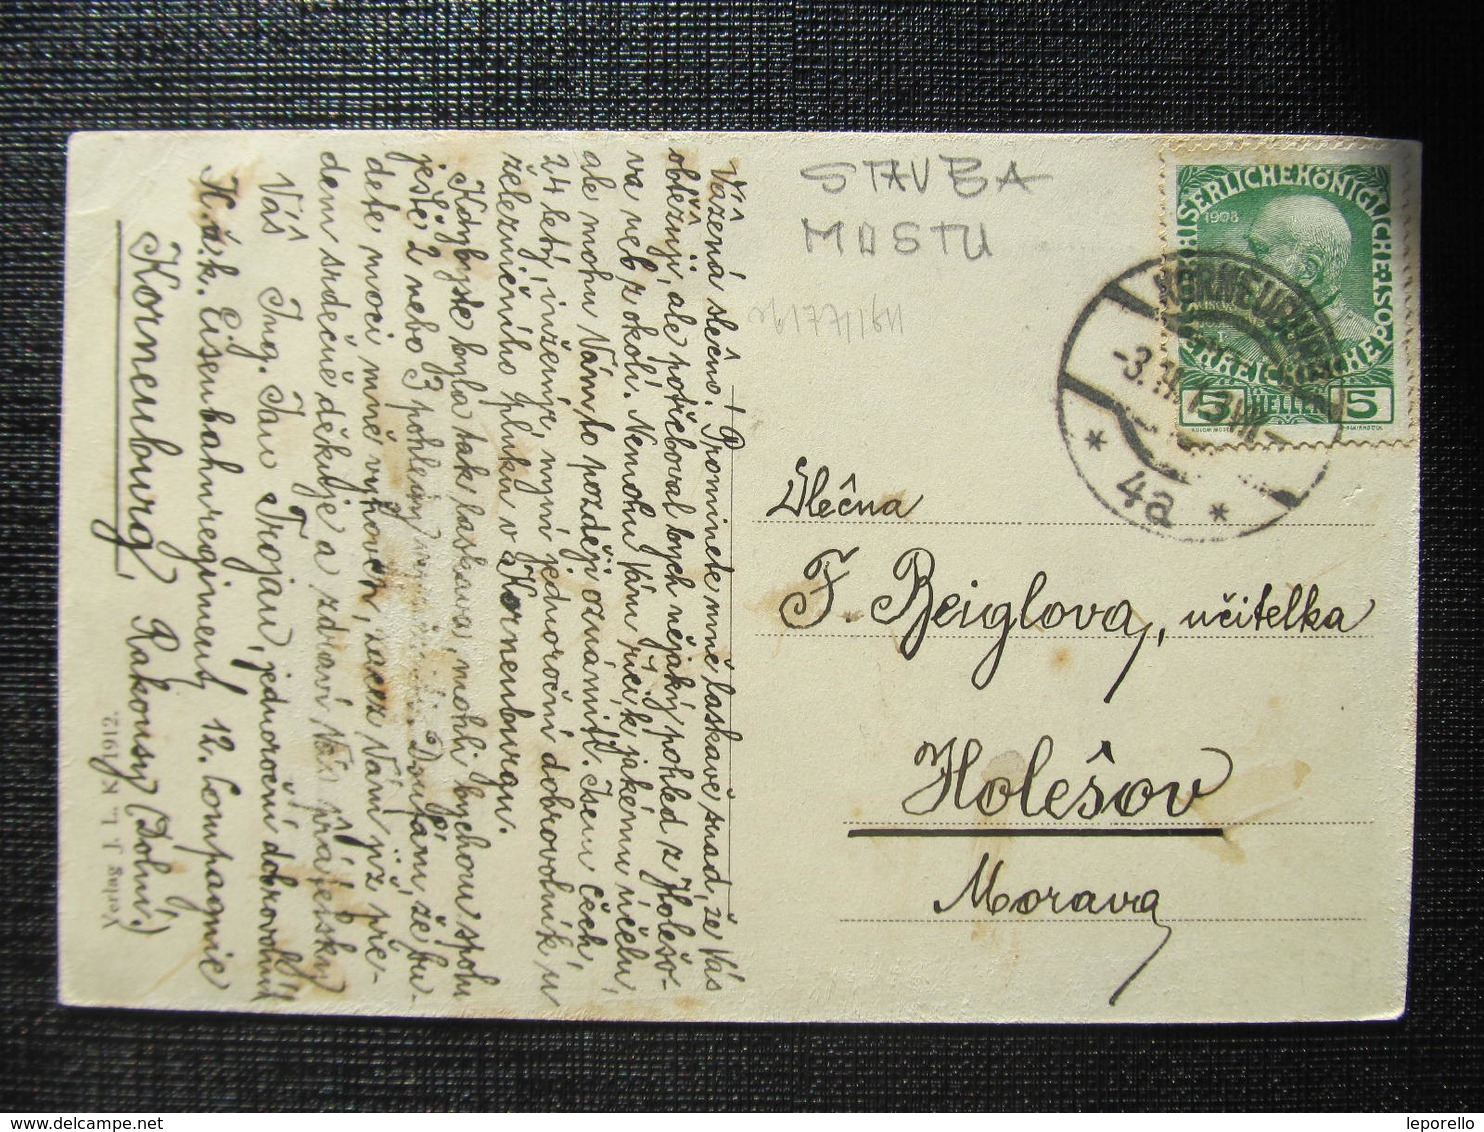 Vážená slečno! Prominete mně laskavě snad, že Vás
obtěžuji, ale potřeboval bych nějaký pohled z Holešo-
va neb z okolí. Nemohu Vám říci k jakému účelu,
ale mohu Vám to později oznámiti. Jsem Čech,
24 letý, inženýr, nyní jednoroční dobrovolník u
železničního pluku v Korneuburgu.
Kdybyste byla tak laskava, mohli bychom spolu
ještě 2 nebo 3 pohledy Doufám, že bu-
dete moci mně vyhověti, začež Vám již pře-
dem srdečně děkuje a zdraví Vás přátelsky
Váš Ing. Jan Trojan, jednoroční dobrovolník
K. u. k. Eisenbahnregiment, 12. Compagnie
Korneuburg, Rakousy (Dolní.)
Verlag J. L. K. 1912.
STAVBA
MOSTU
KAISERLICHEKÖNIGLICHE
1908
5 HELLER 5
KORNEUBURG
-3.
* 4a *
Slečna
F. Beiglova, učitelka
Holešov
Morava
leporello
delcampe.net